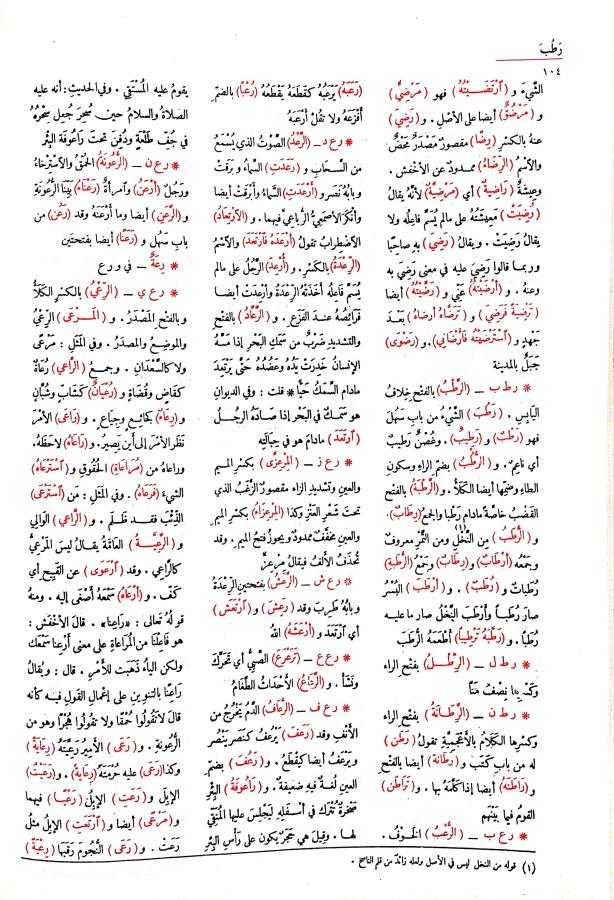 رَطُبَ
١٠٤
الشَّيْءَ و (ٱرْتَضَيْتُهُ) فهو (مَرْضِيٌّ)
و (مَرْضُوٌّ) أيضا على الأَصْل . و (رَضِيَ)
عنه بالكسر (رِضًا) مقصورٌ مصْدَرٌ مَحْضٌ
والاسْمُ (الرِّضَاءُ) ممدودٌ عن الأخفش .
وعِيشَةٌ (رَاضِيةٌ) أي (مَرْضِيَّةٌ) لأنَّه يقالُ
(رُضِيَتْ) مَعِيشَتُهُ على ما لم يُسَمَّ فاعِلُه ولا
يقالُ رَضِيَتْ . ويقالُ (رَضِيَ) بِهِ صاحبًا
وربما قالوا رَضِيَ عليه في معنى رَضِيَ به
وعنه . و (أَرْضَيْتُهُ) عَنِّي و (رَضَّيْتُهُ) أيضا
(تَرْضِيَةً فَرَضِيَ) و (تَرَضَّاهُ أرضاهُ) بَعْدَ
جَهْدٍ و (ٱسْتَرْضَيْتُهُ فَأَرْضَانِي) . و (رَضْوَى)
جَبَلٌ بالمدينة
* ر ط ب ــ (الرَّطْبُ) بالفتح خِلافُ
اليَابِسِ . (رَطُبَ) الشَّيْءُ من باب سَهُلَ
فهو (رَطْبٌ) و (رَطِيبٌ) . وغُصْنٌ رَطِيبٌ
أي ناعِمٌ . و (الرُّطْبُ) بضم الراء وسكون
الطاء وضمِّها أيضا الكَلَأُ . و (الرَّطْبَةُ) بالفتح
القَضْبُ خاصَّةً مادام رَطْبا والجمعُ (رِطَابٌ) .
و (الرُّطَبُ) مِن النَّخْلِ(١) ومن التَّمْرِ معروفٌ
وجمعُه (أَرْطَابٌ) و (رِطَابٌ) وجَمْعُ (الرُّطَبَةِ)
رُطَباتٌ و (رُطَبٌ) . و (أرْطَبَ) البُسْرُ
صارَ رُطَبًا وأَرْطَبَ النَّخْلُ صار ما عليه
رُطَبًا . و (رَطَّبَهُ تَرْطِيبًا) أطْعَمَهُ الرُّطَبَ
* ر ط ل ــ (الرَّطْلُ) بفتح الراء
وكسرها نِصْفُ مَنًا
* ر ط ن ــ (الرَّطَانَةُ) بفتح الراء
وكسرها الكلامُ بالأعْجَمِيَّةِ تقولُ (رَطَنَ)
له من باب كَتَبَ و (رَطَانة) أيضا بالفتح
و (رَاطَنَهُ) أيضا إذا كلَّمَهُ بها . و (تَرَاطَنَ)
القومُ فيما بيْنَهم
* ر ع ب ــ (الرُّعْبُ) الخَوْفُ .
(رَعَبَهُ) يَرْعَبُهُ كقَطَعَهُ يَقْطَعُهُ (رُعْبًا) بالضمّ
أفْزَعَهُ ولا تَقُلْ أَرْعَبَهُ
* ر ع د ــ (الرَّعْدُ) الصَّوْتُ الذي يُسْمَعُ
من السَّحاب و (رَعَدَتِ) السَّماءُ وبَرَقَتْ
وبابُه نَصَر و (أَرْعَدَتِ) السَّماءُ وأبْرَقَتْ أيضا
وأنْكَرَ الأصمعيُّ الرُّباعِيَّ فيهما . و (الاِرْتِعَادُ)
الاِضْطِرابُ تقولُ (أَرْعَدَهُ فَارْتَعَدَ) والاسمُ
(الرِّعْدَةُ) بالكسر . و (أُرْعِدَ) الرَّجُلُ على ما لم
يُسَمَّ فاعِلُه أخَذَتْهُ الرِّعْدَةُ وأُرْعِدَتْ أيضا
فَرائِصُهُ عند الفَزَعِ . و (الرَّعَّادُ) بالفتح
والتشديد ضَرْبٌ من سَمَكِ البَحْرِ إذا مَسَّهُ
الإنسانُ خَدِرَتْ يدُه وعَضُدُه حتَّى يَرْتَعِدَ
مادام السَّمَكُ حَيًّا * قلت : وفي الديوان
هو سَمَكٌ في البحر إذا صادَهُ الرجُلُ
(ٱرْتَعَدَ) مادام هو في حِبَالَتِه
* ر ع ز ــ (المِرْعِزَّى) بكسر الميم
والعين وتشديد الزاء مقصورٌ الزَّغَبُ الذي
تحت شَعْرِ العَنْزِ وكذا (المِرْعِزَاءُ) بكسر الميم
والعين مخفَّفٌ ممدودٌ ويجوزُ فتحُ الميم . وقد
تُحذفُ الألفُ فيقالُ مِرْعِزٌّ
* ر ع ش ــ (الرَّعَشُ) بفتحتين الرِّعْدَةُ
وبابُه طَرِبَ وقد (رَعِشَ) و (ٱرْتَعَشَ)
أي ٱرْتَعَدَ و (أَرْعَشَهُ) اللهُ
* ر ع ع ــ (تَرَعْرَعَ) الصَّبِيُّ أي تَحَرَّكَ
ونَشَأَ . و (الرَّعَاعُ) الأَحْداثُ الطَّغَامُ
* ر ع ف ــ (الرُّعَافُ) الدَّمُ يَخْرُجُ من
الأَنْفِ وقد (رَعَفَ) يَرْعُفُ كنَصَرَ يَنْصُر
ويَرْعَفُ أيضا كيَقْطَعُ . و (رَعُفَ) بضمّ
العين لُغةٌ فيه ضعيفةٌ . و (رَاعُوفَةُ) البِئْرِ
صَخْرَةٌ تُتْرَكُ في أسْفَلِه لِيَجْلِسَ عليها المُنَقِّي
لها . وقيل هي حَجَرٌ يكون على رَأْسِ البِئْرِ
يقومُ عليه المُسْتَقِي . وفي الحديثِ : أنه عليه
الصلاةُ والسلامُ حين سُحِرَ جُعِلَ سِحْرُهُ
في جُفِّ طَلْعَةٍ ودُفِنَ تحتَ رَاعُوفَةِ البِئْر
* ر ع ن ــ (الرُّعُونَةُ) الحُمْقُ والاِسْتِرْخاءُ
ورَجُلٌ (أَرْعَنُ) وٱمرأةٌ (رَعْناءُ) بَيِّنَا الرُّعُونَةِ
و (الرَّعَنِ) أيضا وما أرْعَنَهُ وقد (رَعُنَ) من
باب سَهُلَ و (رَعَنًا) أيضا بفتحتين
* رِعَةٌ ــ في و ر ع
* ر ع ي ــ (الرِّعْيُ) بالكسر الكَلَأُ
وبالفتح المَصْدَرُ . و (المَرْعَى) الرِّعْيُ
والموضِعُ والمصدَرُ . وفي المَثَلِ : مَرْعًى
ولا كالسَّعْدَانِ . وجمعُ (الرَّاعِي) رُعَاةٌ
كقاضٍ وقُضَاةٍ و (رُعْيَانٌ) كشَابٍّ وشُبَّانٍ
و (رِعَاءٌ) بجائعٍ وجِيَاعٍ . و (رَاعَى) الأمْرَ
نَظَرَ الأمْرَ إلى أين يَصِيرُ . و (رَاعَاهُ) لاحَظَهُ .
وراعاهُ من (مُرَاعَاةِ) الحُقُوقِ و (ٱسْتَرْعَاهُ)
الشيءَ (فَرَعَاهُ) . وفي المَثَلِ : من (ٱسْتَرْعَى)
الذِّئْبَ فقد ظَلَمَ . و (الرَّاعِي) الوَالِي
و (الرَّعِيَّةُ) العامَّةُ يقالُ ليس المَرْعِيُّ
كالرَّاعِي . وقد (ٱرْعَوَى) عن القَبِيحِ أي
كَفَّ . و (أرْعَاهُ) سَمْعَهُ أصْغَى إليه . ومنه
قولُه تعالى : «رَاعِنا» . قال الأخفش :
هو فاعِلْنا من المُرَاعَاةِ على معنى أَرْعِنا سَمْعَك
ولكن الياءُ ذَهَبَتْ للأَمْر . قال : ويُقالُ
رَاعِنًا بالتنوين على إعمَال القولِ فيه كأنه
قال لا تَقُولُوا حُمْقًا ولا تقولُوا هُجْرًا وهو من
الرُّعونة . و (رَعَى) الأميرُ رَعِيَّتَهُ (رِعايةً)
وكذا (رَعَى) عليه حُرْمَتَهُ (رِعايةً) . و (رَعَيْتُ)
الإبِلَ و (رَعَتِ) الإبِلُ (رَعْيًا) فيهما
و (مَرْعًى) أيضا و (ٱرْتَعَتِ) الإبِلُ مثلُ
رَعَتْ . و (رَعَى) النُّجُومَ رَقَبَها (رِعْيَةً)
(١) قوله من النخل ليس في الأصل ولعله زائد من قلم الناسخ .